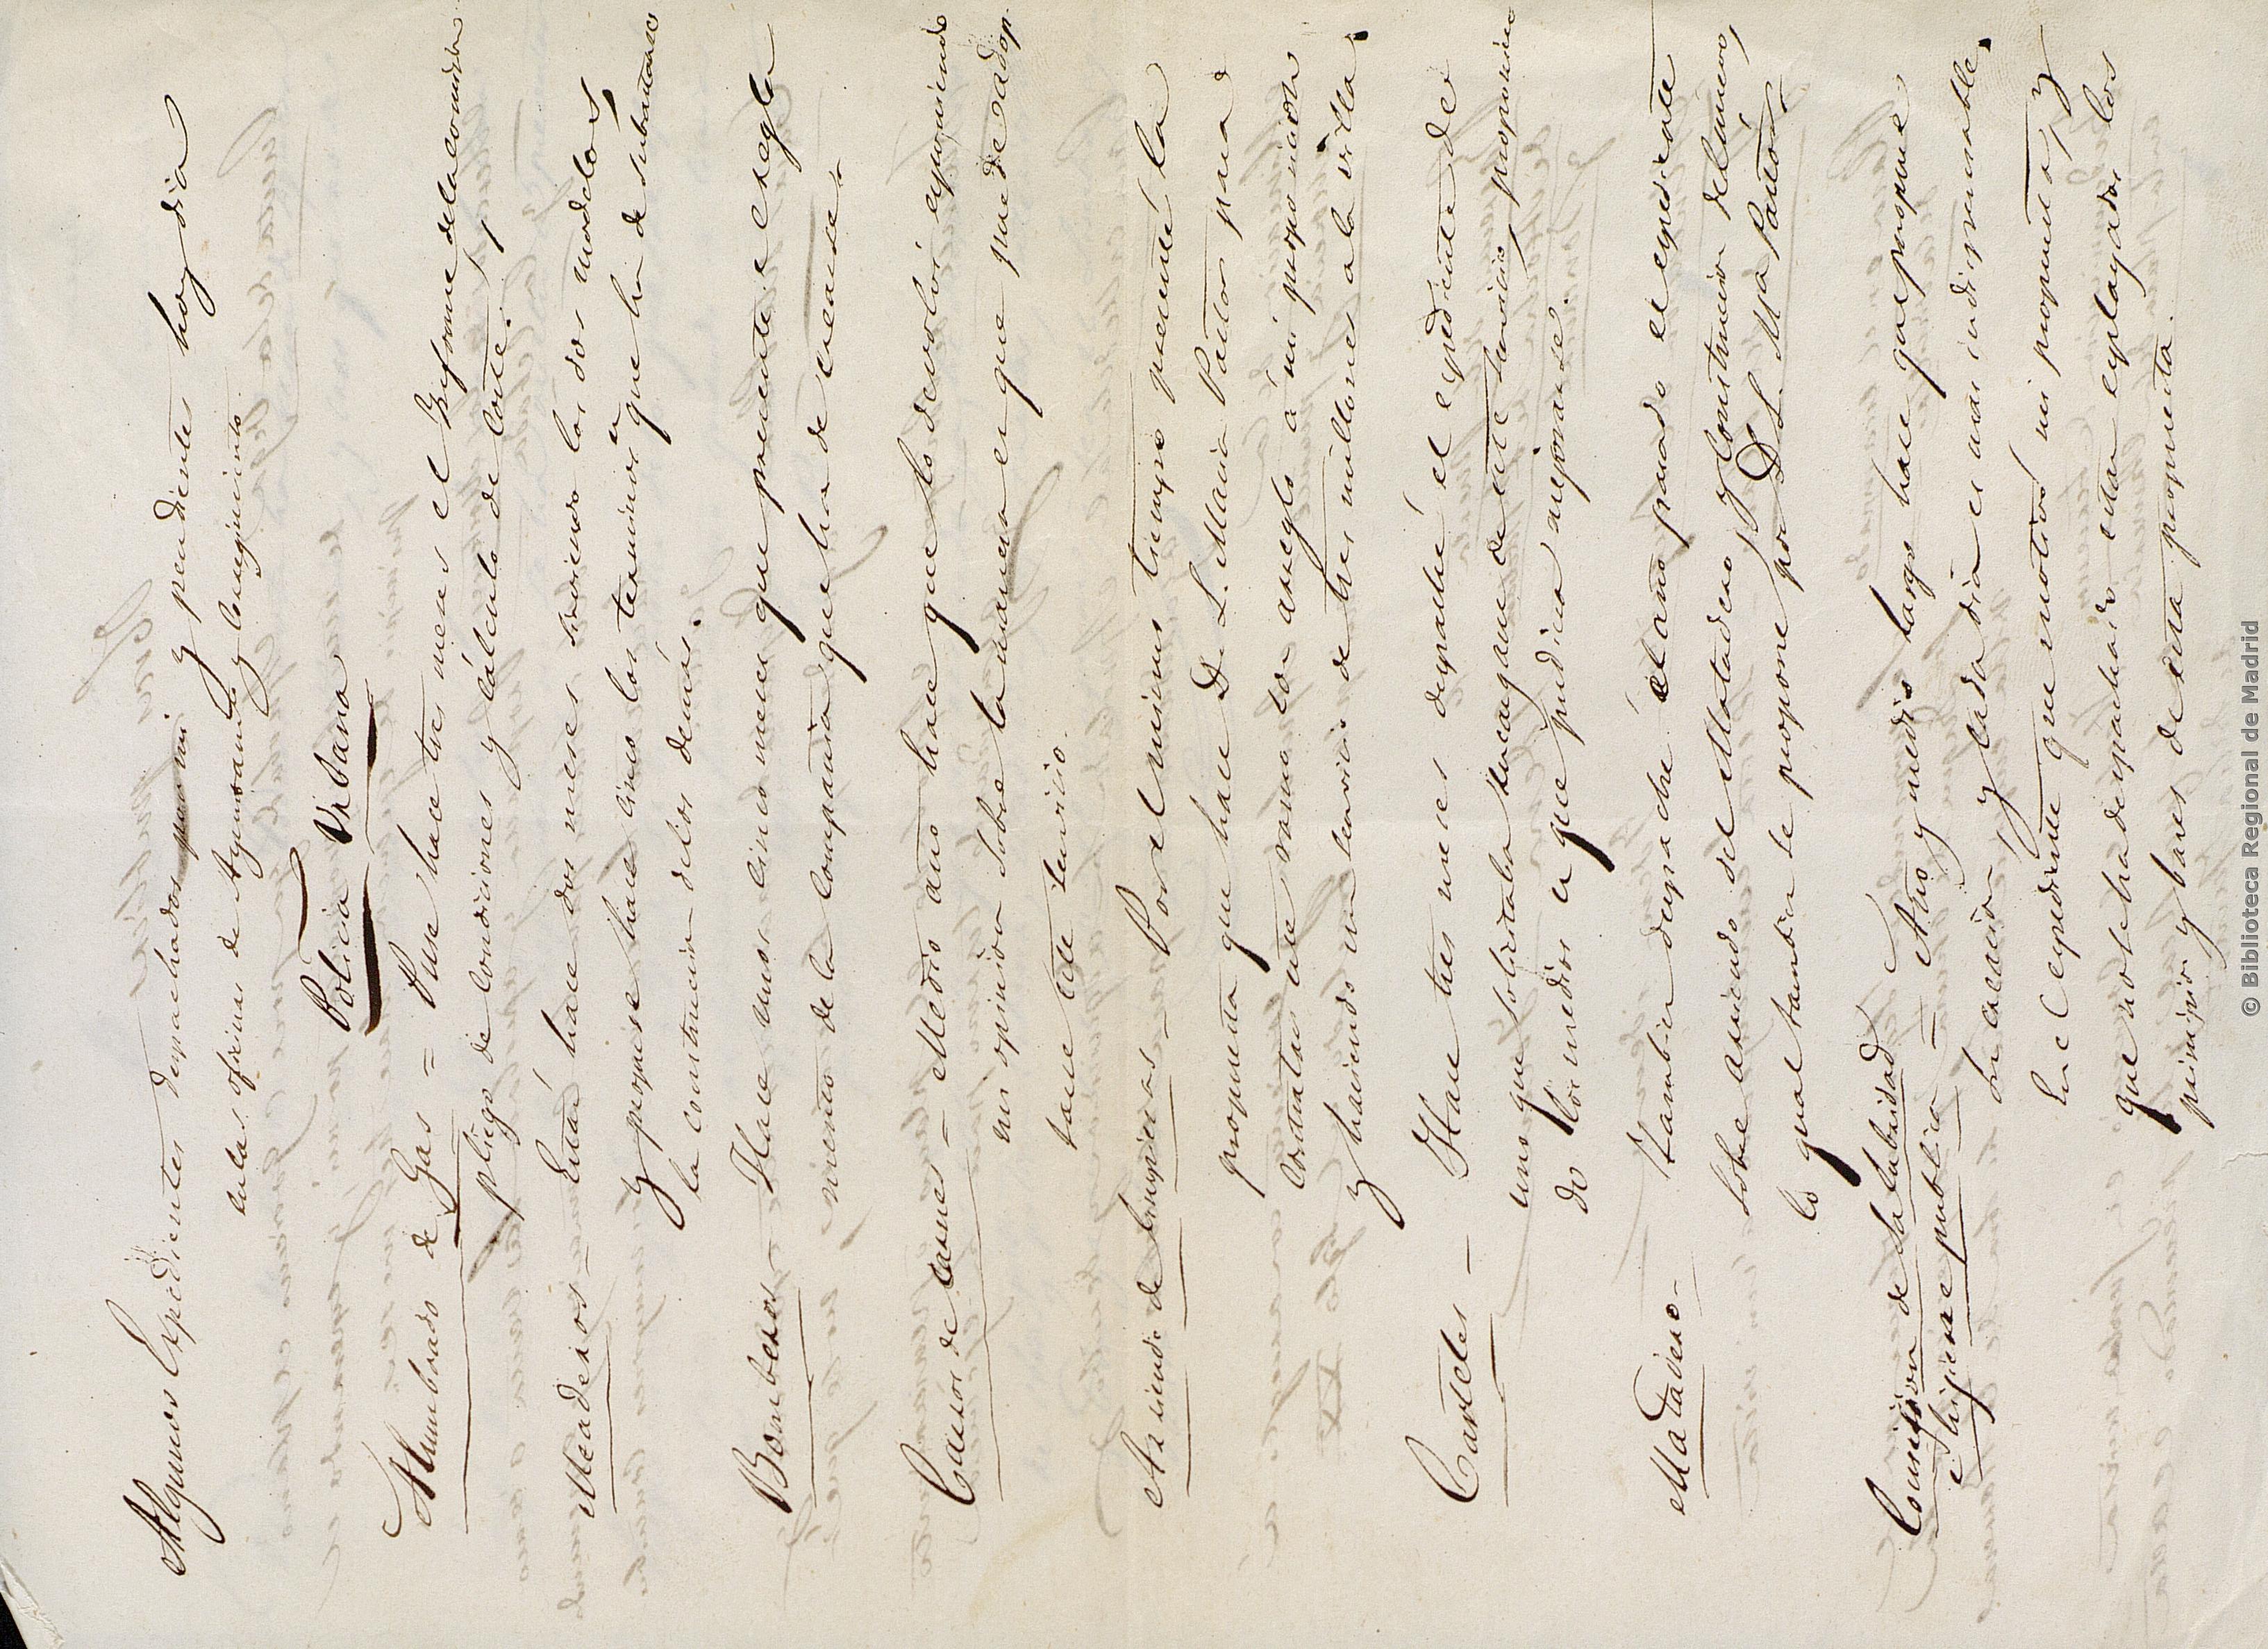 Algunos Expedientes despachados por mi y pendientes hoy dia
en las oficinas de Ayuntamto y Corregimiento.
Policia Urbana
Alumbrado de Gas = Puse hace tres meses el informe de la comision
pliego de condiciones y cálculo de coste.
Meaderos = Está hace dos meses sirviendo los dos modelos,
y propuse hace cinco los terminos en que ha de subastarse
la construccion de los demás.
Bomberos = Hace unos cinco meses que presente el regla
mento de la compañia que ha de crearse.
Casos de carnes = Medio año hace que lo devolví esponiendo
mi opinion sobre la manera en que puede adop
tarse este servicio.
Asiento de limpiezas = Por el mismo tiempo presenté la
propuesta que hace D. L. Maria Pastor para
contratar este ramo con arreglo á mi proposicion
y haciendo un beneficio de tres millones a la villa.
Carteles = Hace tres meses despaché el espediente de
uno que solicitaba encargarse de este servicio, proponien
do los medios en que pudiera mejorarse.
Matadero = Tambien despaché el año pasado el espediente
sobre arriendo del Matadero y construccion del nuevo,
lo qual tambien se propone por D. L. Mja Pastor
Comision de Salubridad
é higiene publica = Año y medio largo hace que propuse
su creacion y cada dia es mas indispensable.
En el espediente que motivó mi propuesta, y
que no se ha despachado estan esplayados los
principios y bases de esta propuesta.
© Biblioteca Regional de Madrid